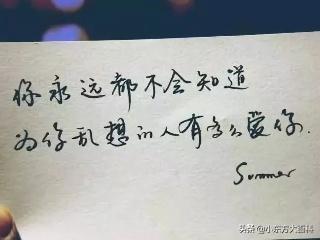 你永远都不会知道
为你乱想的人有多么爱你.
Summer
头条 @小东方大百科